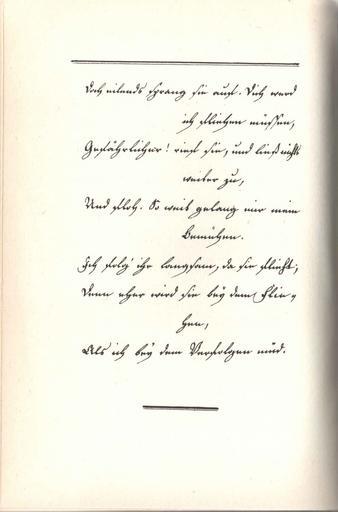 Doch eilends sprang sie auf. Dich werd
ich fliehen müssen,
Gefährlicher! rief sie, und ließ nichts
weiter zu,
Und floh. So weit gelang mir mein
Bemühen.
Ich folg' ihr langsam, da sie flieht;
Denn eher wird sie bey dem Flie-
hen,
Als ich bey dem Verfolgen müd.